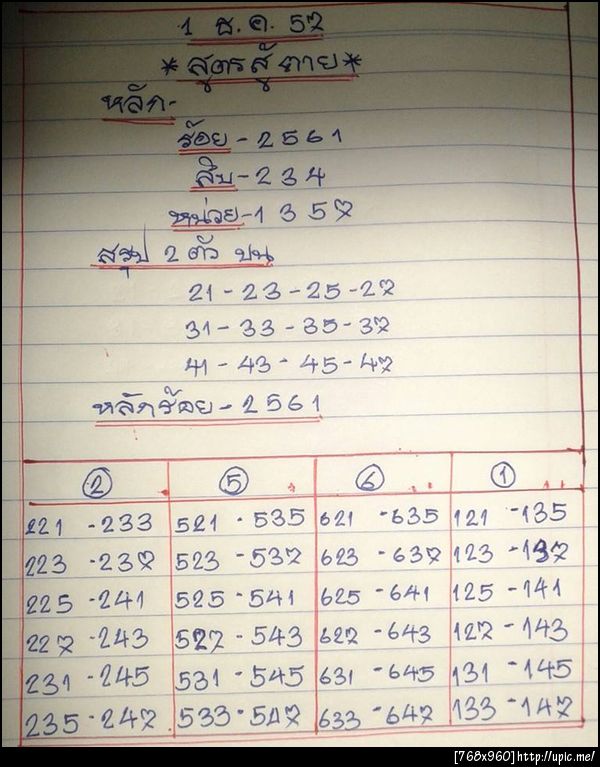 1 ธ.ค. 57
*สูตรสู้ตาย*
หลัก-
ร้อย-2561
สิบ-234
หน่วย-1357
สรุป 2 ตัว บน
21-23-25-27
31-33-35-37
41-43-45-47
หลักร้อย-2561
2 5 6 1
221-233 521-535 621-635 121-135
223-237 523-537 623-637 123-137
225-241 525-541 625-641 125-141
227-243 527-543 627-643 127-143
231-245 531-545 631-645 131-145
235-247 533-547 633-647 133-147
[768x960]http://upic.me/